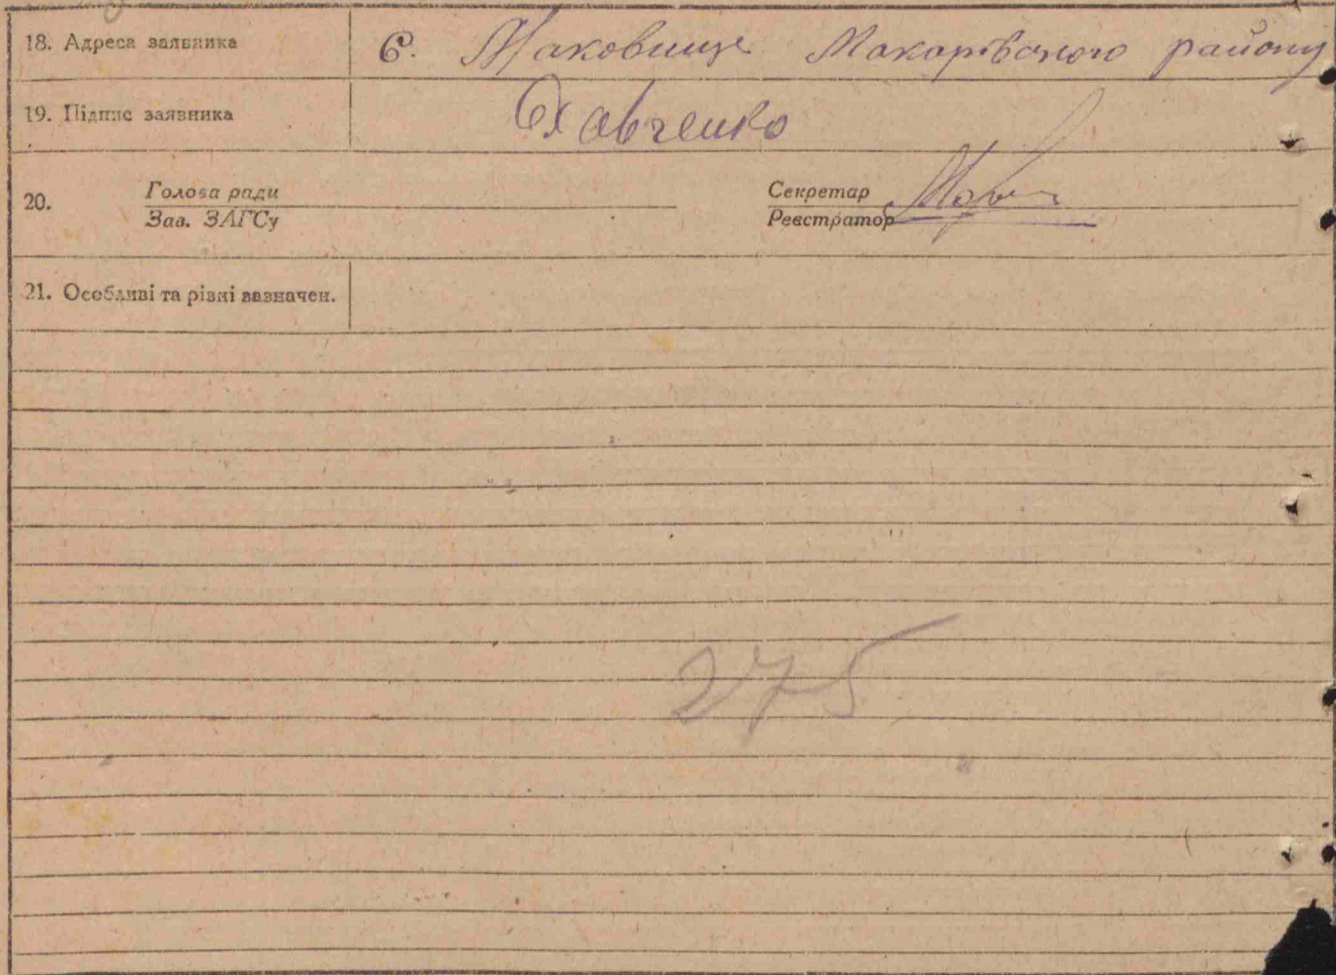 18. Адреса заявника С. Маковище Макарівського району
19. Підпис заявника
20. Голова ради Секретар
Зав. ЗАГСу Реєстратор
21. Особливі та різні зазначен.
275